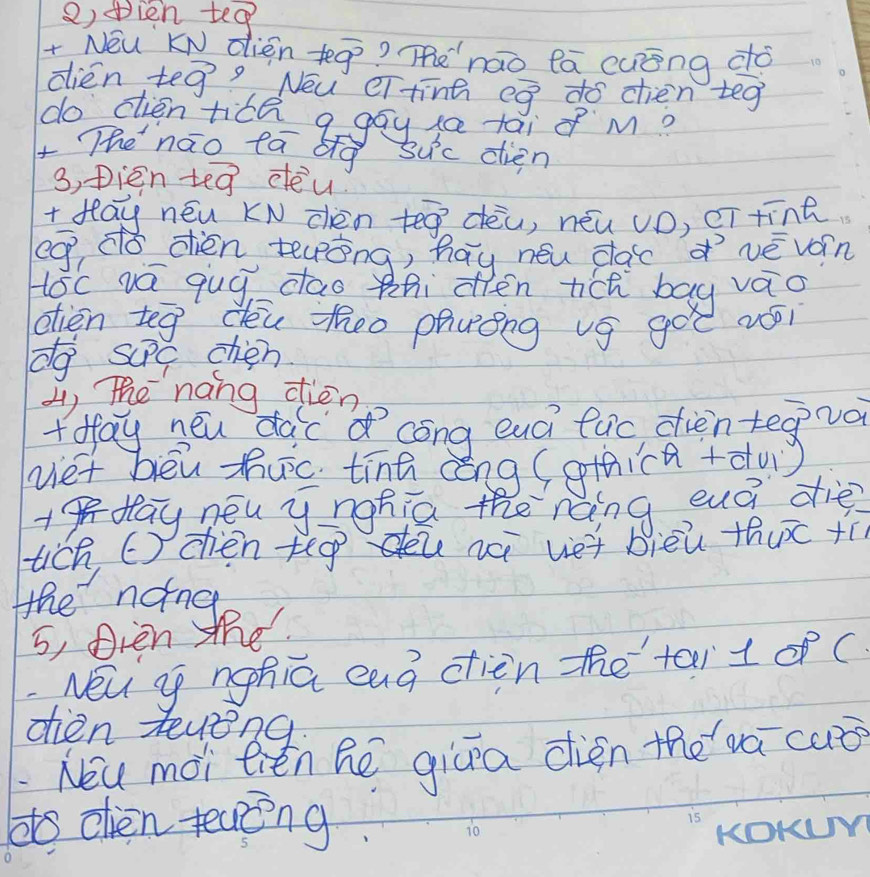 2, Điện trg
+ Nêu KN điện trg? Thế nào là cường độ
điện trg? Nêu CT tính cg độ điện trg
do điện tích q gây ra tại đ' M?
+ Thế nào là đg sức điện
3, Điện trg đều.
+ Hãy nêu KN điện trg đều, nêu VD, CT tính
cg độ điện trường, hãy nêu đặc đ' về vận
tốc và quỹ đạo khi điện tích bay vào
điện trg đều theo phương vg góc với
đg sức điện.
4, Thế năng điện.
+ Hãy nêu đặc đ' công của lực điện trg và
viết biểu thức tính công (gthích + đvị)
+ Hãy nêu ý nghĩa thế năng của điệ
tích (-) điện trg đều và viết biểu thức tí
thế năng
5, Điện thế.
- Nêu ý nghĩa của điện thế tại 1 đ' (
điện trường.
- Nêu mối liên hệ giữa điện thế và cườ
độ điện trường.
0 5 10 15 KOKUY